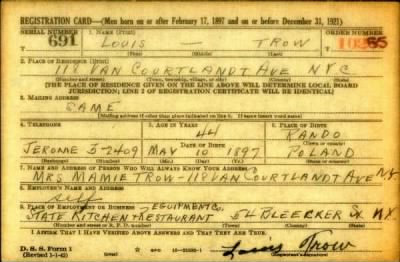 REGISTRATION CARD—(Men born on or after February 17, 1897 and on or before December 31, 1921)
SERIAL NUMBER 1. NAME (Print) ORDER NUMBER
691 LOUIS — TROW
2. PLACE OF RESIDENCE (Print)
118 VAN COURTLANDT AVE NYC
(Number and street) (Town, township, village, or city) (County) (State)
[THE PLACE OF RESIDENCE GIVEN ON THE LINE ABOVE WILL DETERMINE LOCAL BOARD
JURISDICTION; LINE 2 OF REGISTRATION CERTIFICATE WILL BE IDENTICAL]
3. MAILING ADDRESS
SAME
[Mailing address if other than place indicated on line 2. If same insert word same]
4. TELEPHONE 5. AGE IN YEARS 6. PLACE OF BIRTH
44 RANDO
JEROME 5-2409 DATE OF BIRTH
MAY 10 1897 POLAND
7. NAME AND ADDRESS OF PERSON WHO WILL ALWAYS KNOW YOUR ADDRESS
MRS MAMIE TROW-118 VAN COURTLANDT AVE NY
8. EMPLOYER'S NAME AND ADDRESS
self
9. PLACE OF EMPLOYMENT OR BUSINESS EQUIPMENT CO
STATE KITCHEN + RESTAURANT 54 BLEEKER St N.Y.
(Number and street or R. F. D. number) (Town) (County) (State)
I AFFIRM THAT I HAVE VERIFIED ABOVE ANSWERS AND THAT THEY ARE TRUE.
D. S. S. Form 1
(Revised 1-1-42)
Louis Trow
(Registrant's signature)